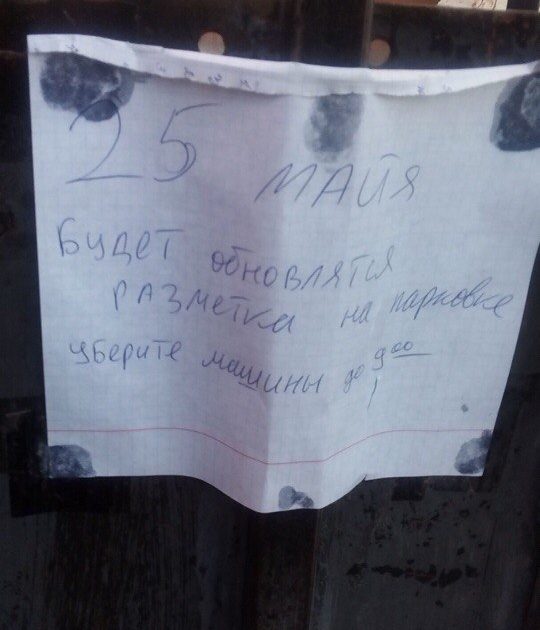 25
МАЙЯ
БУДЕТ обновлятся
РАЗметка на парковке
уберите машины до 9⁰⁰
!